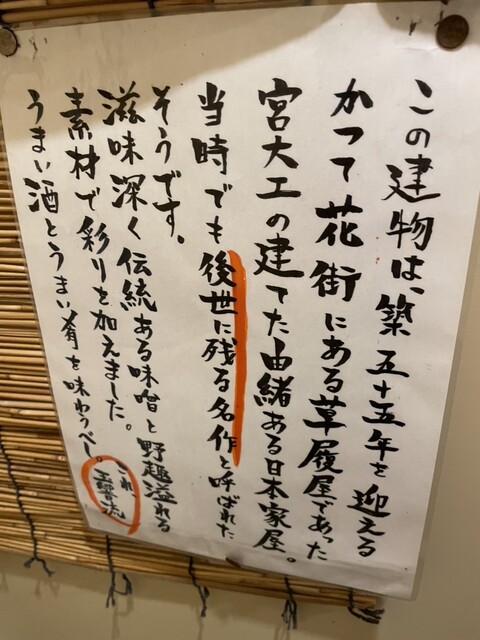 この建物は、築五十五年を迎える
かつて花街にある草履屋であった
宮大工の建てた由緒ある日本家屋。
当時でも後世に残る名作と呼ばれた
そうです。
滋味深く伝統ある味噌と野趣溢れる
素材で彩りを加えました。
うまい酒とうまい肴を味わうべし。
これ